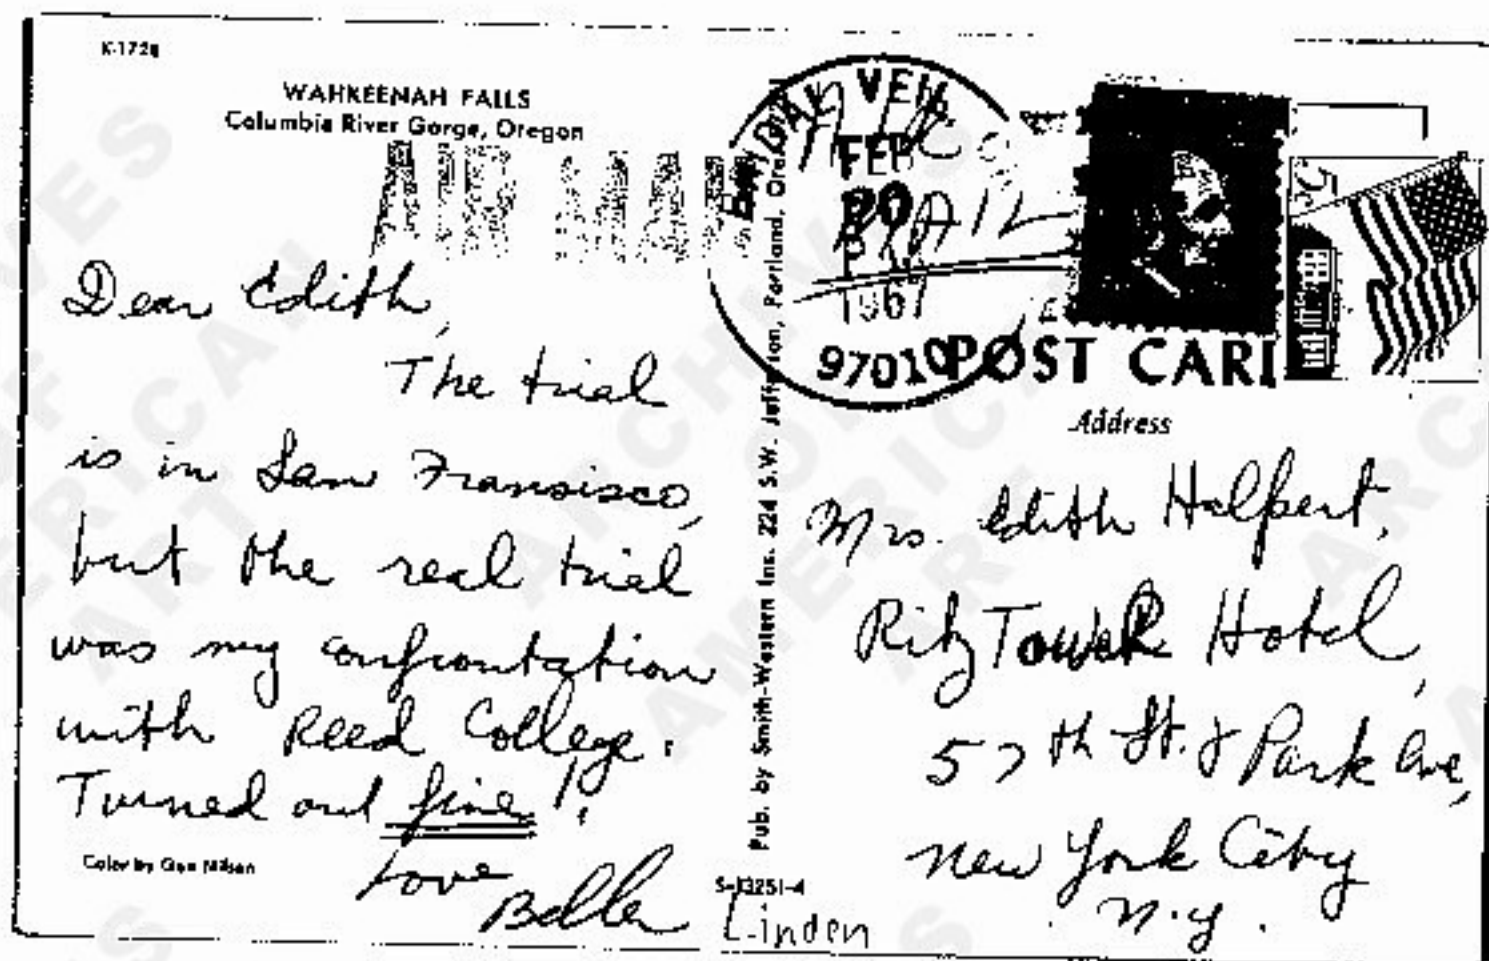 K-1728
WAHKEENAH FALLS
Columbia River Gorge, Oregon
AIR MAIL
Dear Edith,
The trial
is in San Fransisco,
but the real trial
was my confrontation
with Reed College.
Turned out fine!!
Love
Belle
Linden
Color by
S-13251-4
Pub. by Smith-Western Inc. 224 S.W. Jefferson, Portland, Oregon
BRIDAL VEIL
FEB
20
1967
97010
MAIL
5c
POST CARD
Address
Mrs. Edith Halpert,
Ritz Tower Hotel,
57th St. & Park Ave,
New York City
N.Y.
ARCHIVES OF AMERICAN ART